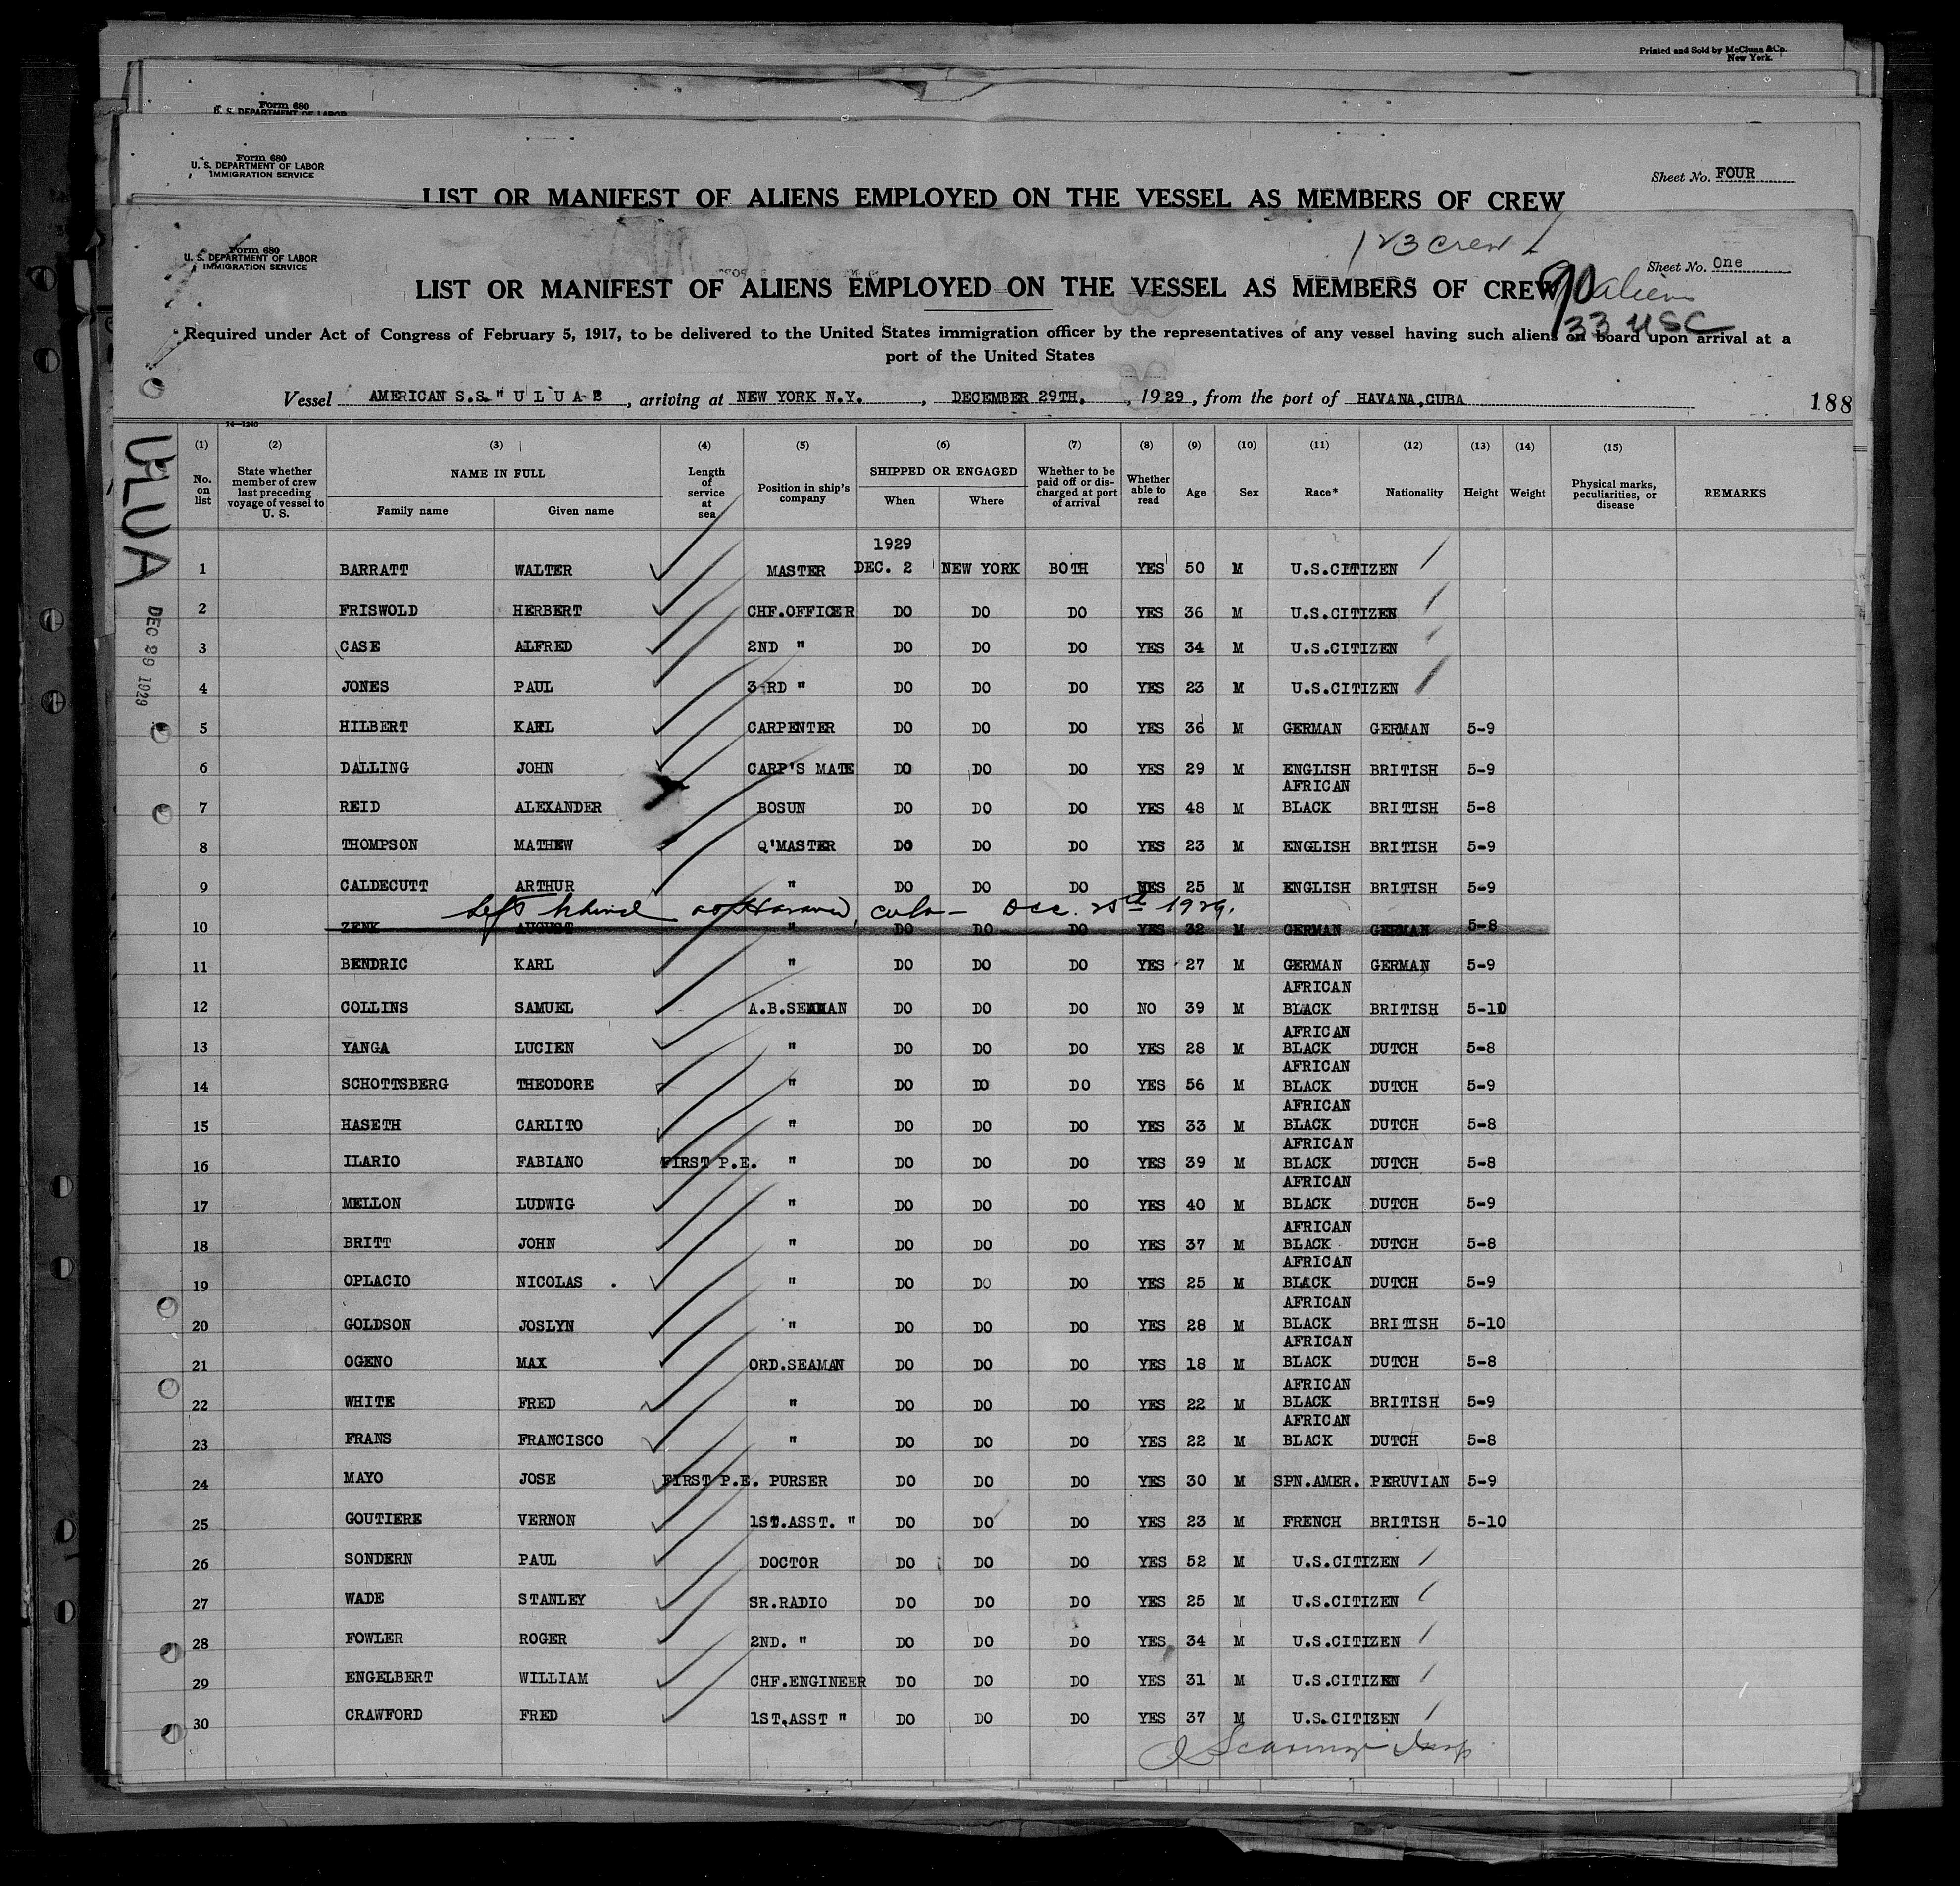 Printed and Sold by McClunn & Co.
New York.
Form 680
U. S. DEPARTMENT OF LABOR
Form 680
U. S. DEPARTMENT OF LABOR
IMMIGRATION SERVICE
Sheet No. FOUR
LIST OR MANIFEST OF ALIENS EMPLOYED ON THE VESSEL AS MEMBERS OF CREW
123 crew
Form 680
U. S. DEPARTMENT OF LABOR
IMMIGRATION SERVICE
Sheet No. One
LIST OR MANIFEST OF ALIENS EMPLOYED ON THE VESSEL AS MEMBERS OF CREW
90 aliens
33 USC
Required under Act of Congress of February 5, 1917, to be delivered to the United States immigration officer by the representatives of any vessel having such aliens on board upon arrival at a
port of the United States
Vessel AMERICAN S.S. "U L U A", arriving at NEW YORK N.Y., DECEMBER 29TH., 1929, from the port of HAVANA, CUBA
188
ULUA
DEC 29 1929
14—1240
(1) (2) (3) (4) (5) (6) (7) (8) (9) (10) (11) (12) (13) (14) (15)
No. on list State whether member of crew last preceding voyage of vessel to U. S. NAME IN FULL Family name Given name Length of service at sea Position in ship's company SHIPPED OR ENGAGED When Where Whether to be paid off or discharged at port of arrival Whether able to read Age Sex Race* Nationality Height Weight Physical marks, peculiarities, or disease REMARKS
1929
1 BARRATT WALTER MASTER DEC. 2 NEW YORK BOTH YES 50 M U.S.CITIZEN
2 FRISWOLD HERBERT CHF.OFFICER DO DO DO YES 36 M U.S.CITIZEN
3 CASE ALFRED 2ND " DO DO DO YES 34 M U.S.CITIZEN
4 JONES PAUL 3-RD " DO DO DO YES 23 M U.S.CITIZEN
5 HILBERT KARL CARPENTER DO DO DO YES 36 M GERMAN GERMAN 5-9
6 DALLING JOHN CARP'S MATE DO DO DO YES 29 M ENGLISH BRITISH 5-9
7 REID ALEXANDER BOSUN DO DO DO YES 48 M AFRICAN BLACK BRITISH 5-8
8 THOMPSON MATHEW Q'MASTER DO DO DO YES 23 M ENGLISH BRITISH 5-9
9 CALDECUTT ARTHUR " DO DO DO YES 25 M ENGLISH BRITISH 5-9
Left behind at Havana, Cuba - Dec. 25th 1929.
10 ZENK AUGUST " DO DO DO YES 32 M GERMAN GERMAN 5-8
11 BENDRIC KARL " DO DO DO YES 27 M GERMAN GERMAN 5-9
12 COLLINS SAMUEL A.B.SEAMAN DO DO DO NO 39 M AFRICAN BLACK BRITISH 5-11
13 YANGA LUCIEN " DO DO DO YES 28 M AFRICAN BLACK DUTCH 5-8
14 SCHOTTSBERG THEODORE " DO DO DO YES 56 M AFRICAN BLACK DUTCH 5-9
15 HASETH CARLITO " DO DO DO YES 33 M AFRICAN BLACK DUTCH 5-8
16 ILARIO FABIANO FIRST P.E. " DO DO DO YES 39 M AFRICAN BLACK DUTCH 5-8
17 MELLON LUDWIG " DO DO DO YES 40 M AFRICAN BLACK DUTCH 5-9
18 BRITT JOHN " DO DO DO YES 37 M AFRICAN BLACK DUTCH 5-8
19 OPLACIO NICOLAS . " DO DO DO YES 25 M AFRICAN BLACK DUTCH 5-9
20 GOLDSON JOSLYN " DO DO DO YES 28 M AFRICAN BLACK BRITISH 5-10
21 OGENO MAX ORD.SEAMAN DO DO DO YES 18 M AFRICAN BLACK DUTCH 5-8
22 WHITE FRED " DO DO DO YES 22 M AFRICAN BLACK BRITISH 5-9
23 FRANS FRANCISCO " DO DO DO YES 22 M AFRICAN BLACK DUTCH 5-8
24 MAYO JOSE FIRST P.E. PURSER DO DO DO YES 30 M SPN.AMER. PERUVIAN 5-9
25 GOUTIERE VERNON 1ST.ASST. " DO DO DO YES 23 M FRENCH BRITISH 5-10
26 SONDERN PAUL DOCTOR DO DO DO YES 52 M U.S.CITIZEN
27 WADE STANLEY SR.RADIO DO DO DO YES 25 M U.S.CITIZEN
28 FOWLER ROGER 2ND. " DO DO DO YES 34 M U.S.CITIZEN
29 ENGELBERT WILLIAM CHF.ENGINEER DO DO DO YES 31 M U.S.CITIZEN
30 CRAWFORD FRED 1ST.ASST " DO DO DO YES 37 M U.S.CITIZEN